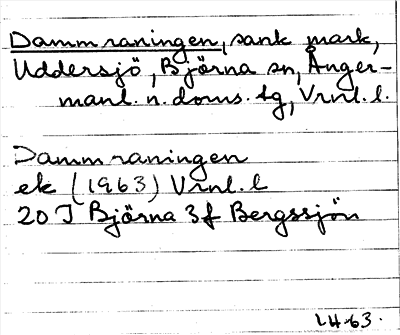 Dammraningen, sank mark,
Uddersjö, Björna sn, Ånger-
manl. n. doms. tg, Vrnl. l.
Dammraningen
ek (1963) Vrnl. l
20 I Björna 3f Bergssjön
L4.63.